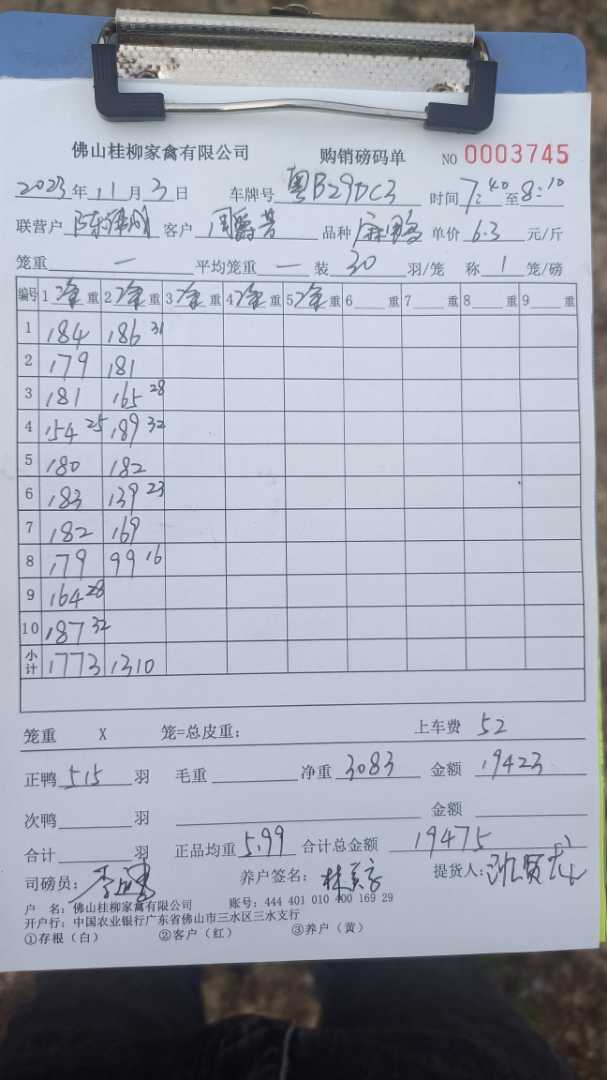 佛山桂柳家禽有限公司 购销磅码单 NO 0003745
2023年11月3日 车牌号 粤B29DC3 时间7:40至8:10
联营户 客户 品种 麻鸭 单价 6.3 元/斤
笼重 — 平均笼重 — 装 30 羽/笼 称 1 笼/磅
编号 1净重 2净重 3净重 4净重 5净重 6 重 7 重 8 重 9 重
1 184 186 31
2 179 181
3 181 165 28
4 154 25 189 32
5 180 182
6 183 139 23
7 182 169
8 179 99 16
9 164 28
10 187 32
小计 1773 1310
笼重 X 笼=总皮重: 上车费 52
正鸭 515 羽 毛重 净重 3083 金额 19423
次鸭 羽 金额
合计 羽 正品均重 5.99 合计总金额 19475
司磅员: 养户签名: 提货人:
户 名: 佛山桂柳家禽有限公司 账号: 444 401 010 400 169 29
开户行: 中国农业银行广东省佛山市三水区三水支行
①存根（白） ②客户（红） ③养户（黄）